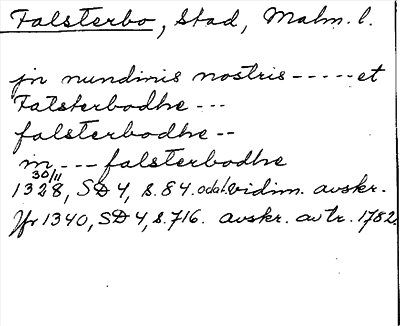 Falsterbo, Stad, Malm. l.
jn nundinis nostris ----- et
Falsterbodhe ---
falsterbodhe --
in --- falsterbodhe
30/11
1328, SD 4, s. 84. odat. vidim. avskr.
Jfr 1340, SD 4, s. 716. avskr. av tr. 1782.